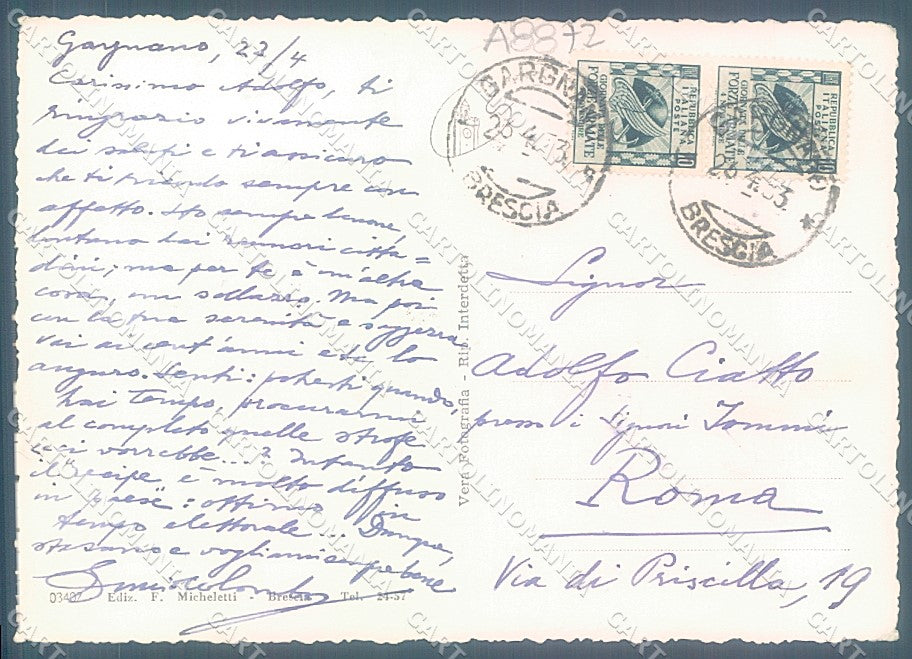 A8872
Gargnano, 27/4
Carissimo Adolfo, ti
ringrazio vivamente
dei saluti e ti assicuro
che ti ricordo sempre con
affetto. Sto sempre bene,
lontano dai rumori citta=
dini; ma per te è un'altra
cosa, un sollazzo. Ma poi
con la tua serenità e saggezza
vivi ai cent'anni e te lo
auguro. Senti: potresti quando,
hai tempo, procurarmi
al completo quelle strofe
"ci vorrebbe...? Intanto
il recipe, è molto diffuso
in paese: ottimo in
tempo elettorale. Dunque,
stiamo sano e vogliamoci sempre bene
GARGNANO
BRESCIA
REPUBBLICA
ITALIANA
POSTE
10
FORZE ARMATE
GARGNANO
BRESCIA
REPUBBLICA
ITALIANA
POSTE
10
FORZE ARMATE
Signor
Adolfo Ciatto
presso i Signori Tommi
Roma
Via di Priscilla, 19
Vera Fotografia - Rip. Interdetta
03407 Ediz. F. Micheletti - Brescia - Tel. 24-57
CARTOLINOMANIA